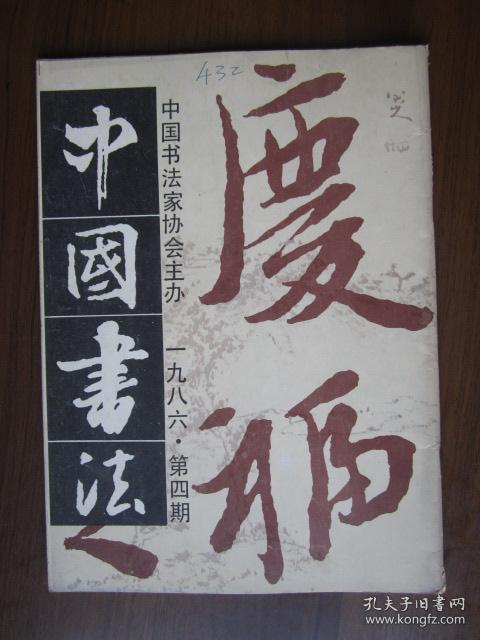 432
中國書法
中国书法家协会主办
一九八六·第四期
慶福
孔夫子旧书网
www.kongfz.com